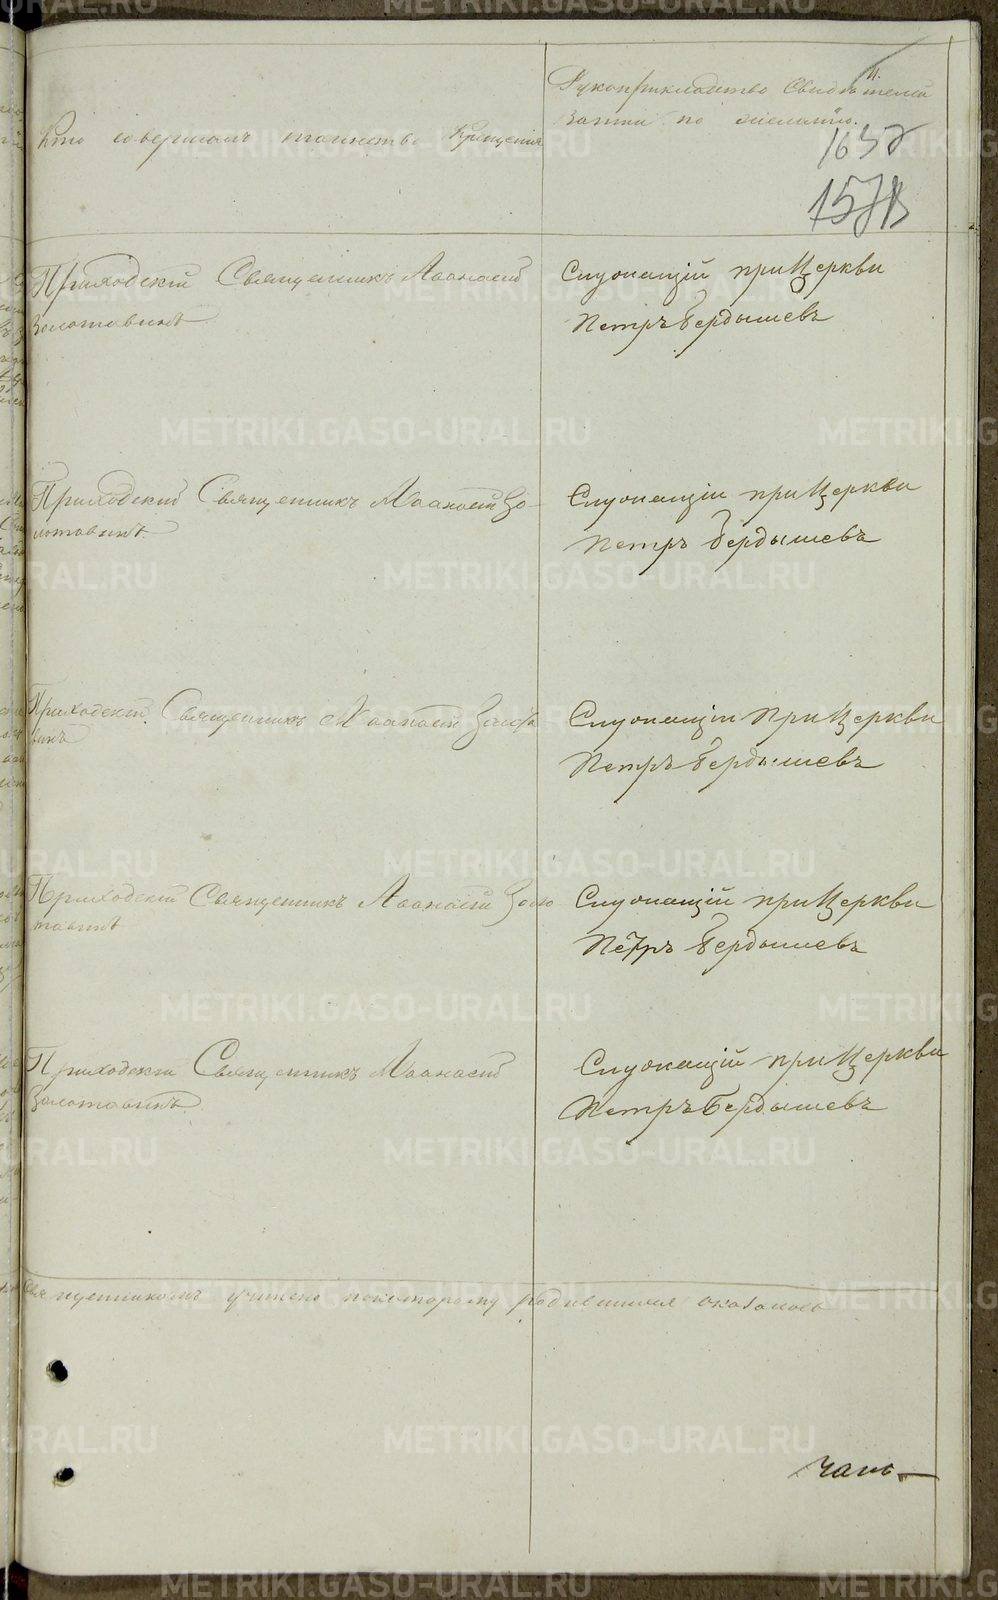 Кто совершалъ таинство Крещенія
Рукоприкладство Свидѣтелей
записи по желанію.
Приходскій Священникъ Аѳанасій
Золотавинъ
Служащій при Церкви
Петръ Бердышевъ
Приходскій Священникъ Аѳанасій Зо-
лотавинъ
Служащій при Церкви
Петръ Бердышевъ
Приходскій Священникъ Аѳанасій Золота
винъ
Служащій при Церкви
Петръ Бердышевъ
Приходскій Священникъ Аѳанасій Золо
тавинъ
Служащій при Церкви
Петръ Бердышевъ
Приходскій Священникъ Аѳанасій
Золотавинъ
Служащій при Церкви
Петръ Бердышевъ
Священникомъ учинено по которому родившихся оказалось
METRIKI.GASO-URAL.RU